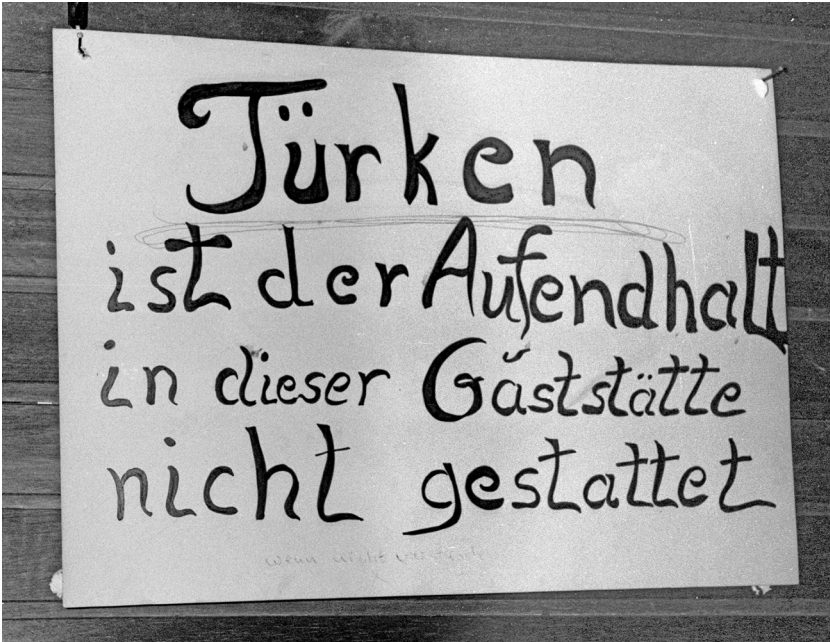 Türken
ist der Aufendhalt
in dieser Gáststätte
nicht gestattet
wenn nicht